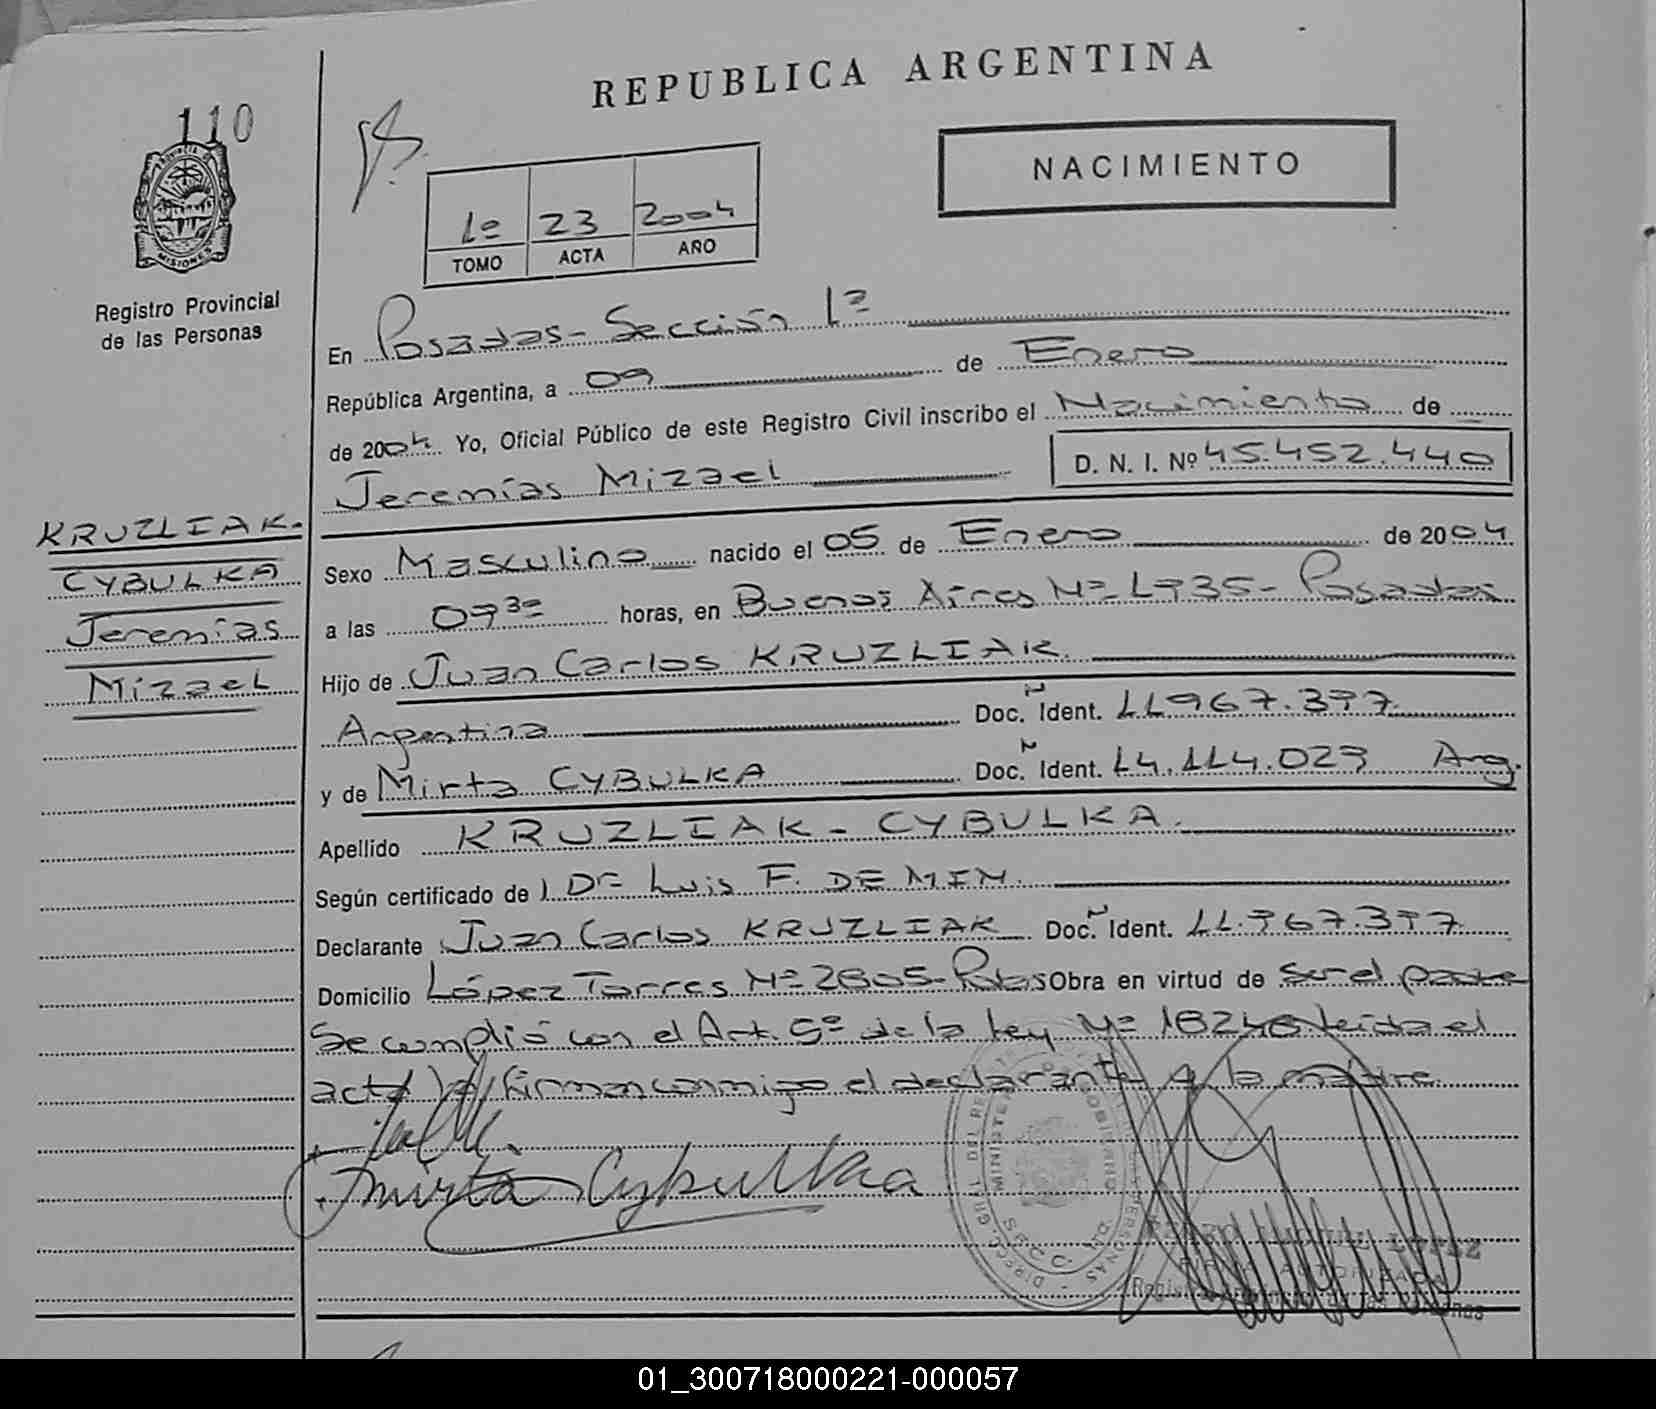 REPUBLICA ARGENTINA
110
NACIMIENTO
1º 23 2004
TOMO ACTA AÑO
PROVINCIA DE
MISIONES
Registro Provincial
de las Personas
En Posadas - Sección 1ª
República Argentina, a 09 de Enero
de 2004 Yo, Oficial Público de este Registro Civil inscribo el Nacimiento de
Jeremías Mizael D. N. I. Nº 45.452.440
KRUZLIAK-
CYBULKA
Jeremías
Mizael
Sexo Masculino nacido el 05 de Enero de 2004
a las 0730 horas, en Buenos Aires Nº 1935 - Posadas
Hijo de Juan Carlos KRUZLIAK.
Argentina Doc. Ident. 11.967.397
y de Mirta CYBULKA Doc. Ident. 14.114.029 Arg.
Apellido KRUZLIAK - CYBULKA.
Según certificado de Dr Luis F. DE MIN.
Declarante Juan Carlos KRUZLIAK Doc. Ident. 11.967.397
Domicilio López Torres Nº 2605 - Pdas Obra en virtud de ser el padre
Se cumplió con el Art. 5º de la Ley Nº 18248 leída el
acta firman conmigo el declarante y la madre.
Mirta Cybulka
FIRMA AUTORIZADA
01_300718000221-000057